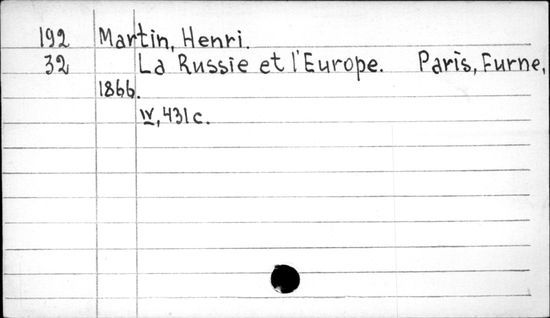 192 Martin, Henri.
32 La Russie et l'Europe. Paris, Furne,
1866.
IV, 431 c.